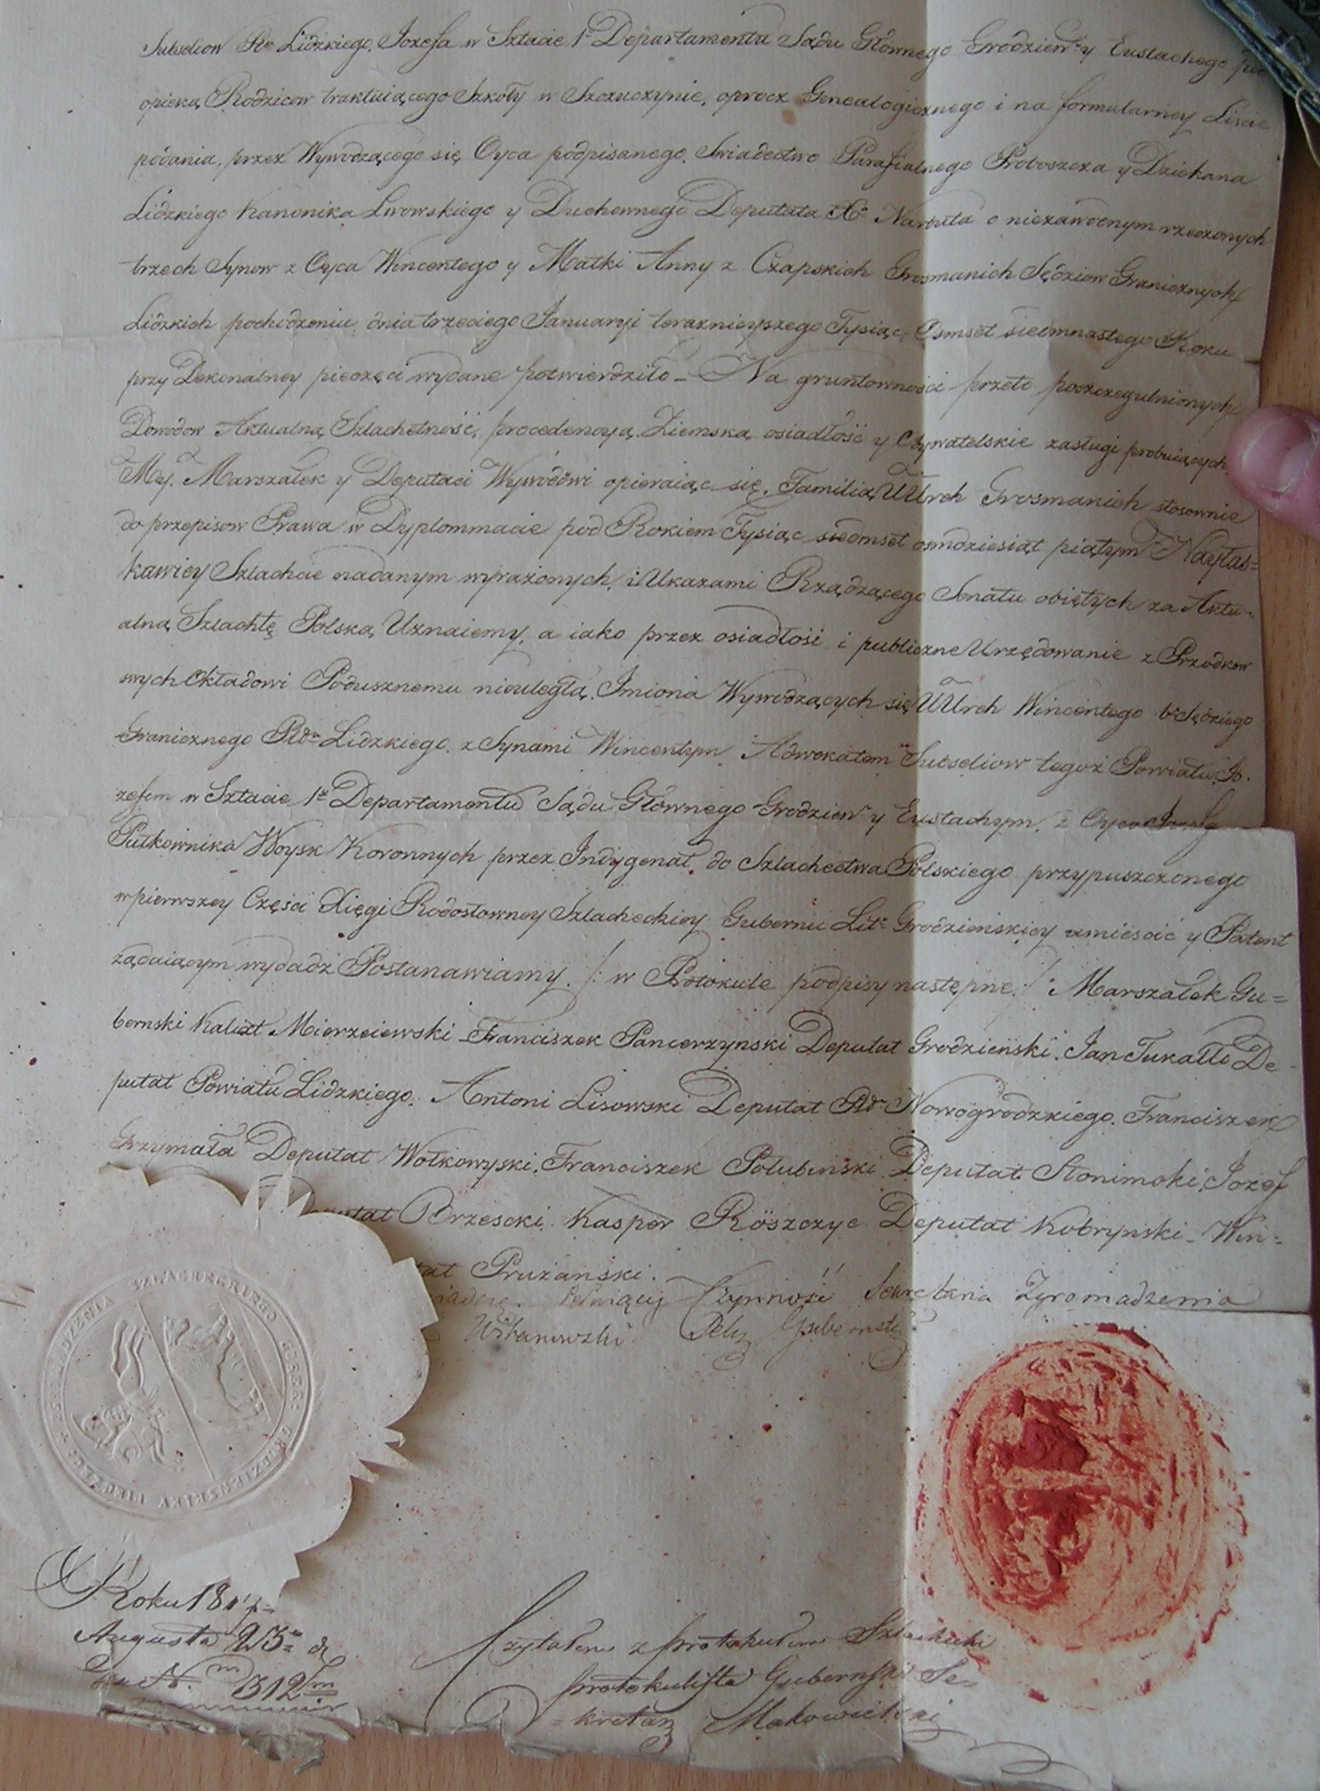 Subseliow Ptu Lidzkiego, Jozefa w Sztacie 1o Departamentu Sądu Głównego Grodzień: y Eustachego pod
opieką Rodzicow traktuiącego Szkoły w Szczuczynie, oprocz Genealogicznego i na formularney Liscie
podania, przez Wywodzącego się Oyca podpisanego, Swiadectwo Parafialnego Proboszcza y Dziekana
Lidzkiego Kanonika Lwowskiego y Duchownego Deputata Xa Narbuta o niezawodnym rzeczonych
trzech Synow z Oyca Wincentego y Matki Anny z Czapskich Grosmanich Sędziow Granicznych
Lidzkich pochodzeniu, dnia trzeciego Januaryi teraznieyszego Tysiąc Osmset siedmnastego Roku
przy Dekonalney pieczęci wydane potwierdziło _ Na gruntowności przeto poszczegulnionych
Dowodow Aktualną Szlachetność, procedencyą Ziemską osiadłość y Obywatelskie zasługi probuiących
My. Marszałek y Deputaci Wywodowi opieraiąc się, Familią UUrch Grosmanich stosownie
do przepisow Prawa w Dyplommacie pod Rokiem Tysiąc siedmset osmdziesiąt piątym Nayłas=
kawiey Szlachcie nadanym wyrażonych, i Ukazami Rządzącego Senatu obiętych za Aktu-
alną Szlachtę Polską Uznaiemy, a iako przez osiadłość i publiczne Urzędowanie z Przodkow
swych Okładowi Podusznemu nieuległą, Imiona Wywodzących się UUrch Wincentego b: Sędziego
Granicznego Ptu Lidzkiego, z Synami Wincentym Adwokatem Subseliow tegoż Powiatu, Jo-
zefem w Sztacie 1o Departamentu Sądu Głównego Grodzień: y Eustachym, z Oyca Jozefa
Pułkownika Woysk Koronnych przez Indygenat, do Szlachectwa Polskiego przypuszczonego
w pierwszey Części Xięgi Rodosłowney Szlacheckiey Gubernii Litt: Grodzieńskiey umieścić y Patent
żądaiącym wydadź Postanawiamy. /: w Protokule podpisy następne: / Marszałek Gu=
bernski Kalixt Mierzeiewski _ Franciszek Pancerzynski Deputat Grodzieński. Jan Tukałło De-
putat Powiatu Lidzkiego. Antoni Lisowski Deputat Ptu Nowogrodzkiego. Franciszek
Grzymała Deputat Wołkowyski. Franciszek Połubiński Deputat Słonimski, Jozef
Deputat Brzescki. Kasper Röszczyc Deputat Kobrynski _ Win=
Prużański.
Pełniący Czynność Sekretarza Zgromadzenia
SZLACHECKIEGO GUBERN: GRODZIENSKIEY
Roku 1817
Augusta 23 d
za N. 312
Czytałem z protokułem Szlachecki
protokulista Gubernski Se=
kretarz Makowiecki